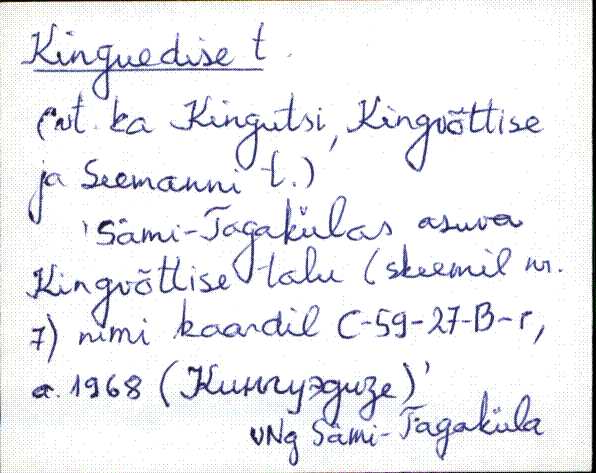 Kinguedise t.
(vt. ka Kingutsi, Kingvõttise
ja Seemanni t.)
'Sämi-Tagakülas asuva
Kingvõttise talu (skeemil nr.
7) nimi kaardil C-59-27-B-г,
a. 1968 (Кингуэдизе)'
VNg Sämi-Tagaküla